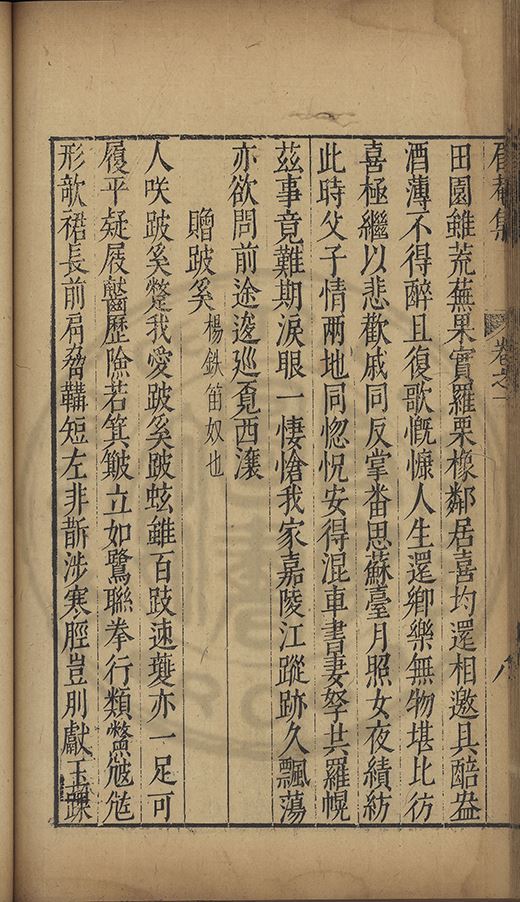 眉菴集 卷之一 八
田園雖荒蕪果實羅栗橡鄰居喜均還相邀具醅盎
酒薄不得醉且復歌慨慷人生還鄉樂無物堪比彷
喜極繼以悲歡戚同反掌畨思蘇臺月照女夜績紡
此時父子情兩地同惚怳安得混車書妻孥共羅幌
茲事竟難期淚眼一悽愴我家嘉陵江蹤跡久飄蕩
亦欲問前途逡巡覔西瀼
贈跛奚 楊鉄笛奴也
人咲跛奚蹩我愛跛奚跛蚿雖百跂速夔亦一足可
履平疑屐齾歷險若箕簸立如鷺聯拳行類鱉
形欹裙長前肩脅鞲短左非斮涉寒脛豈刖獻玉踝